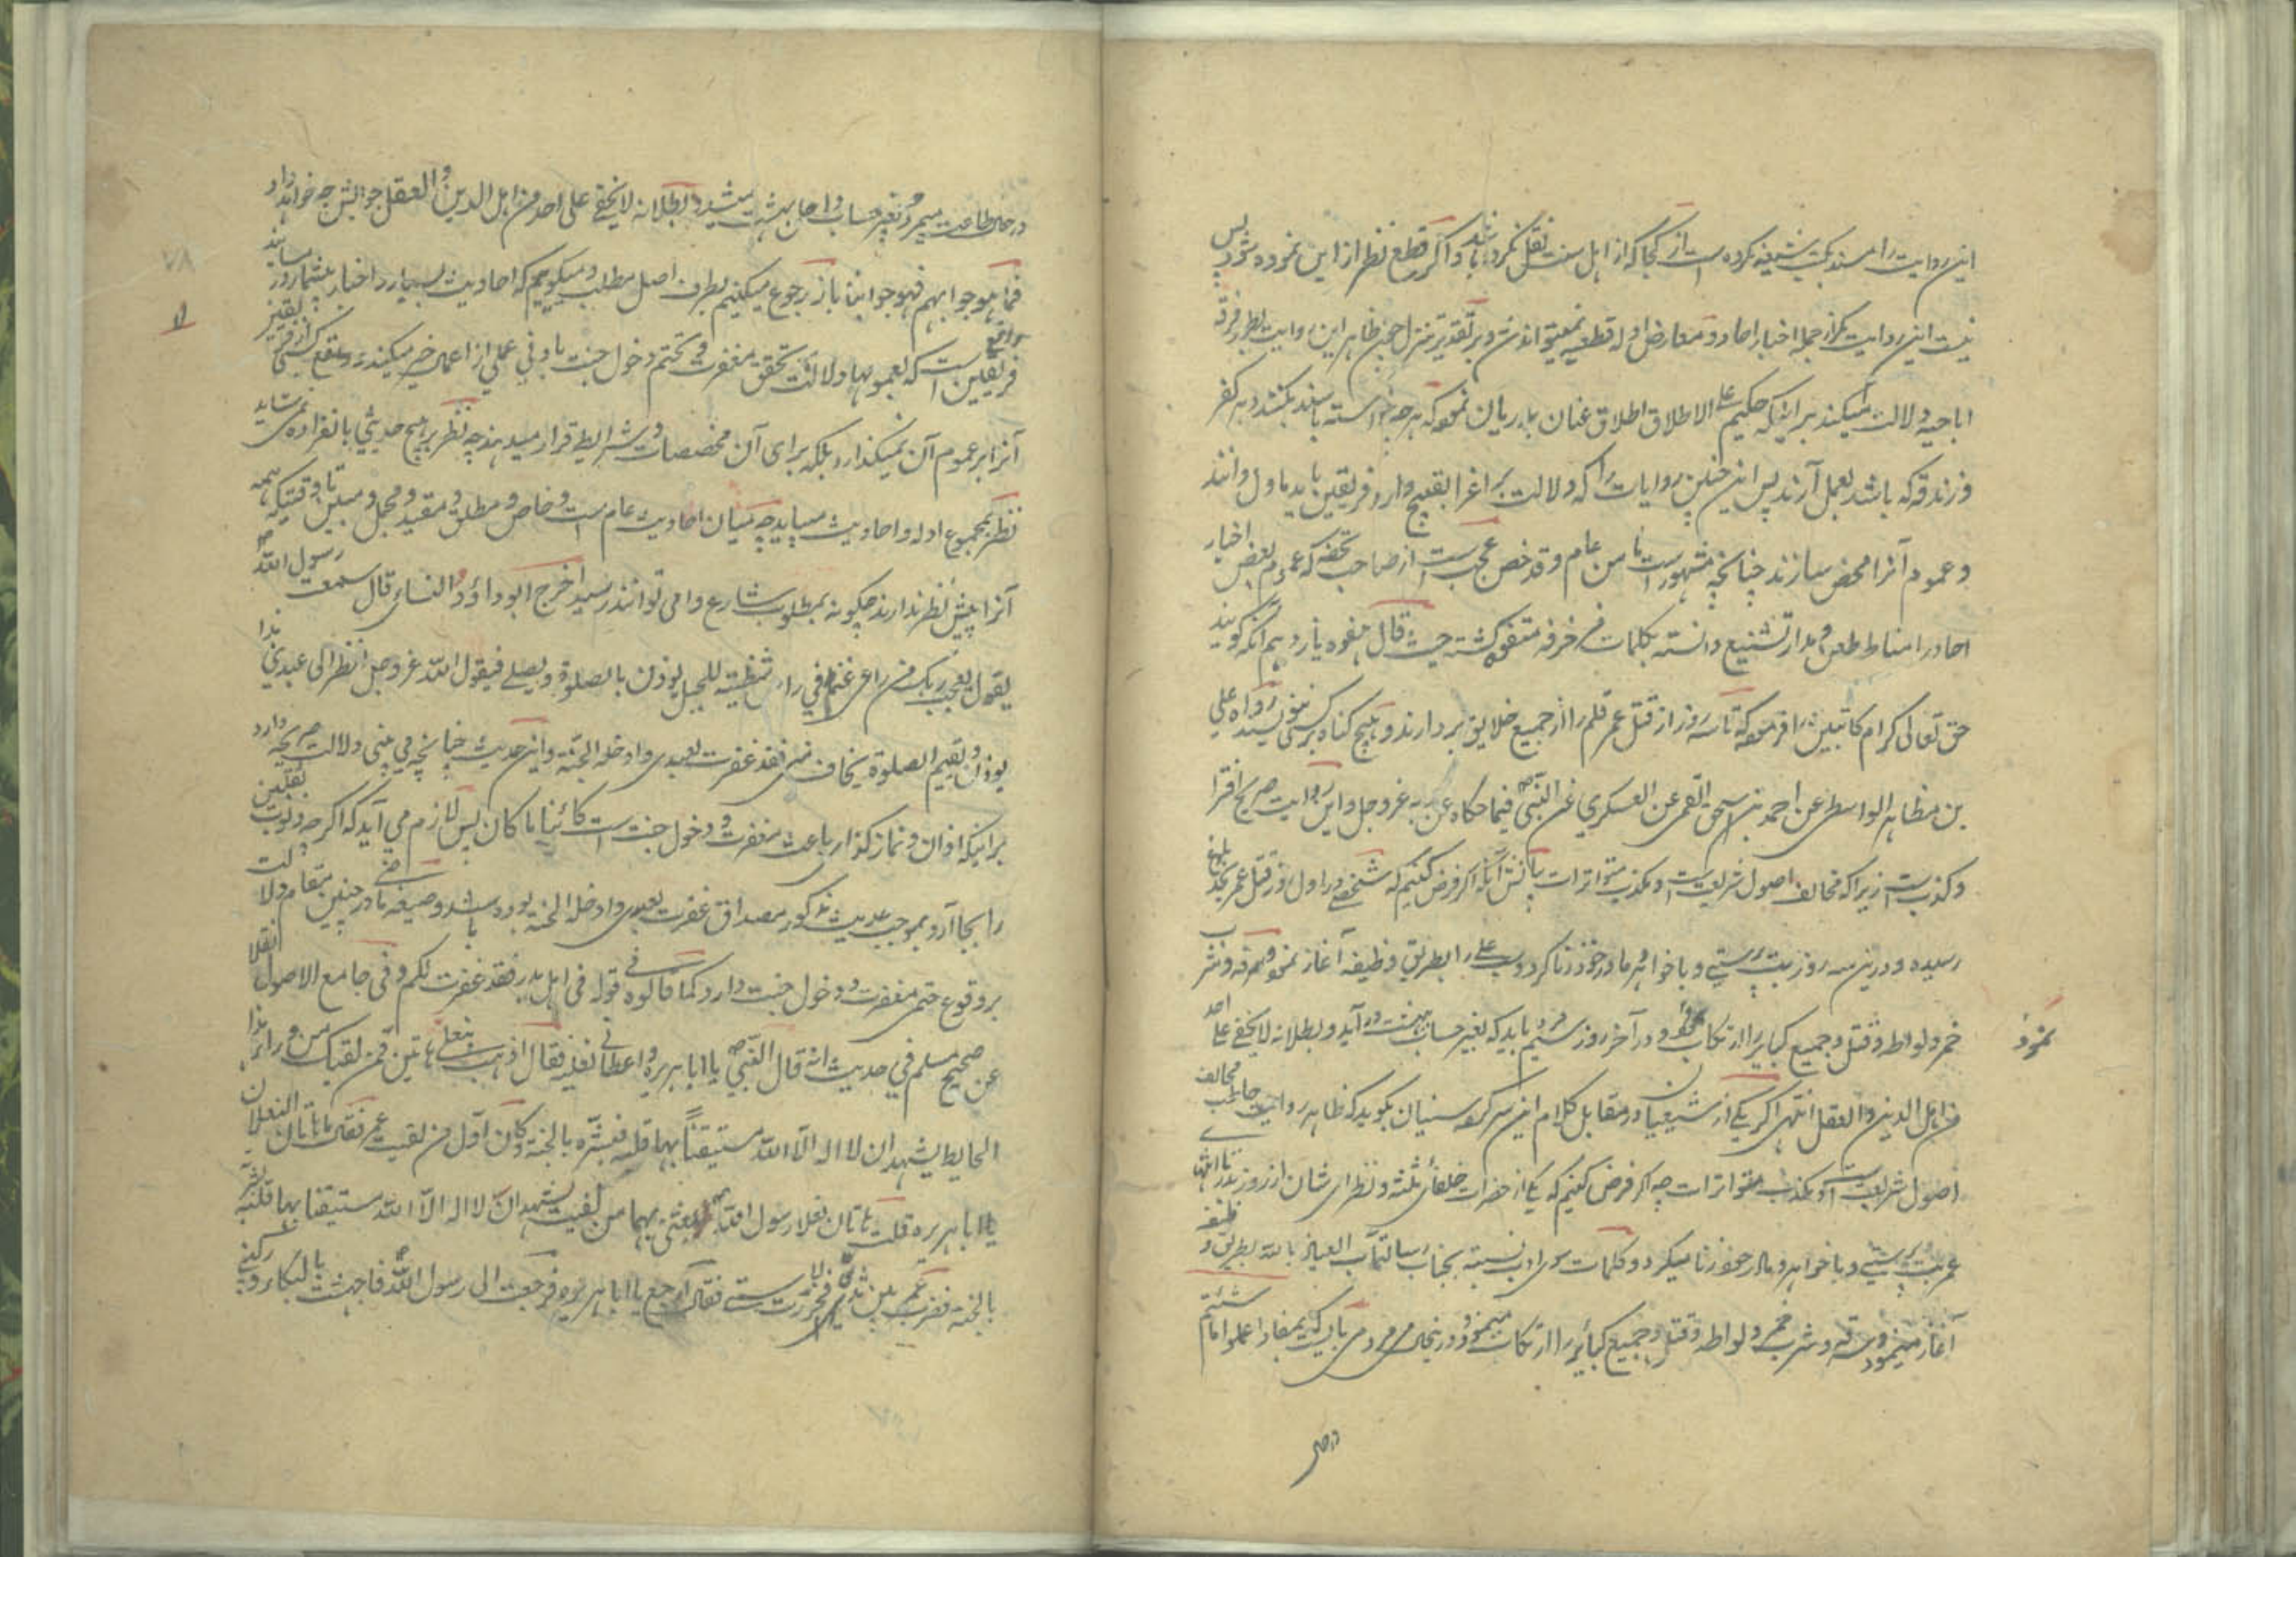 این روایت را مسند بکتب شیعه نکرده است از کجا که از اهل سنت نقل نکرده باشد و اگر قطع نظر از این نموده شود پس
نیست این روایت مگر از جمله اخبار احاد و معارض ادله قطعیه نمیتواند شد و بر تقدیر تنزل چون ظاهر این روایت بطور فرقه
اباحیه دلالت میکند بر اینکه حکیم علی الاطلاق اطلاق عنان نموده که هرچه خواسته باشند بکنند و هر کفر
و زندقه که باشد بعمل آرند پس این چنین روایات را که دلالت بر اغرا بقبیح دارد فریقین باید ماول دانند
و عموم آنرا مخصص سازند چنانچه مشهور است ما من عام و قد خص عجب است از صاحب تحفه که عموم بعض اخبار
احاد را مناط طعن و مدار تشنیع دانسته بکلمات مزخرفه متفوه گشته حیث قال هفوه یازدهم آنکه گویند
حق تعالی کرام کاتبین را فرموده که تا سه روز از قتل عمر قلم را از جمیع خلایق بردارند و هیچ گناه بر کسی ننویسند رواه علی
بن مظاهر الواسطی عن احمد بن اسحق القمی عن العسکری عن النبی ص فیما حکاه عن ربه عز و جل و این روایت صریح افترا
و کذب است زیرا که مخالف اصول شریعت است و مکذب متواترات بیانش آنکه اگر فرض کنیم که شخصی در اول روز قتل عمر بحد بلوغ
رسیده و درین سه روز بت پرستی و با خواهر و مادر خود زنا کرد و سب علی را بطریق وظیفه آغاز نمود و سرقه و شرب
خمر و لواطه و قتل و جمیع کبایر را ارتکاب نمود و در آخر روز سیم مرد باید که بغیر حساب بهشت در آید و بطلانه لا یخفی علی احد
نمود
من اهل الدین و العقل انتهی اگر یکی از شیعیان در مقابل کلام این سرکرده سنیان بگوید که ظاهر روایت حاطب مخالف
اصول شریعت است و مکذب متواترات چه اگر فرض کنیم که یکی از حضرات خلفای ثلثه و نظرای شان از روز بدر تا انتهای
عمر بت پرستی و با خواهر و مادر خود زنا میکرد و کلمات سوی ادب نسبت بجناب رسالتمآب العیاذ بالله بطریق وظیفه
آغاز مینمود و سرقه و شرب خمر و لواطه و قتل و جمیع کبائر را ارتکاب مینمود و در همان حال می مرد می بایست که بمفاد اعملوا ما شئتم
در حین
در عین طاعت میمرد و بغیر حساب داخل بهشت میشد و بطلانه لا یخفی علی احد من اهل الدین و العقل جوابش چه خواهند داد
فما هو جوابهم فهو جوابنا باز رجوع میکنیم بطرف اصل مطلب و میگوییم که احادیث بسیار و اخبار بیشمار در مسانید
فریقین واقع است که بعمومها دلالت بر تحقق مغفرت و تحتم دخول جنت بادنی عملی از اعمال خیر میکنند و مع ذلک کسی از فریقین
آنرا بر عموم آن نمیگذارد بلکه برای آن مخصصات و شرایط قرار میدهند چه نظر بر هیچ حدیثی بانفراده نمی شاید
نظر بمجموع ادله و احادیث میباید چه میان احادیث عام است و خاص و مطلق و مقید و مجمل و مبین تا وقتیکه همه
آنرا پیش نظر ندارند چگونه بمطلوب شارع وا می توانند رسید اخرج ابو داؤد و النسائی قال سمعت رسول الله ص
یقول یعجب ربک من راعی غنم فی راس شظیة للجبل یوذن بالصلوة و یصلی فیقول الله عز و جل انظر الی عبدی هذا
یوذن و یقیم الصلوة یخاف منی فقد غفرت لعبدی و ادخله الجنة و این حدیث چنانچه می بینی دلالت صریحه دارد
بر اینکه اذان و نمازگذار باعث مغفرت و دخول جنت است کائنا ما کان پس لازم می آید که اگر چه ذنوب ثقلین
را بجا آرد بموجب حدیث مذکور مصداق غفرت لعبدی و ادخله الجنة بوده باشد و صیغه ماضی در چنین مقام دلالت
بر وقوع حتمی مغفرت و دخول جنت دارد کما قالوه فی قوله فی اهل بدر فقد غفرت لکم و فی جامع الاصول نقلا
عن صحیح مسلم فی حدیث انه قال النبی ص یا ابا هریره و اعطانی نعلیه فقال اذهب بنعلی هاتین فمن لقیک من وراء هذا
الحایط یشهد ان لا اله الا الله مستیقنا بها قلبه فبشره بالجنة و کان اول من لقیت عمر فقال ما هاتان النعلان
یا ابا هریره قلت هاتان نعلا رسول الله ص بعثنی بهما من لقیت یشهد ان لا اله الا الله مستیقنا بها قلبه بشرته
بالجنة فضرب عمر بین ثدیی فخررت لاستی فقال ارجع یا ابا هریره فرجعت الی رسول الله ص فاجهشت بالبکاء و رکبنی